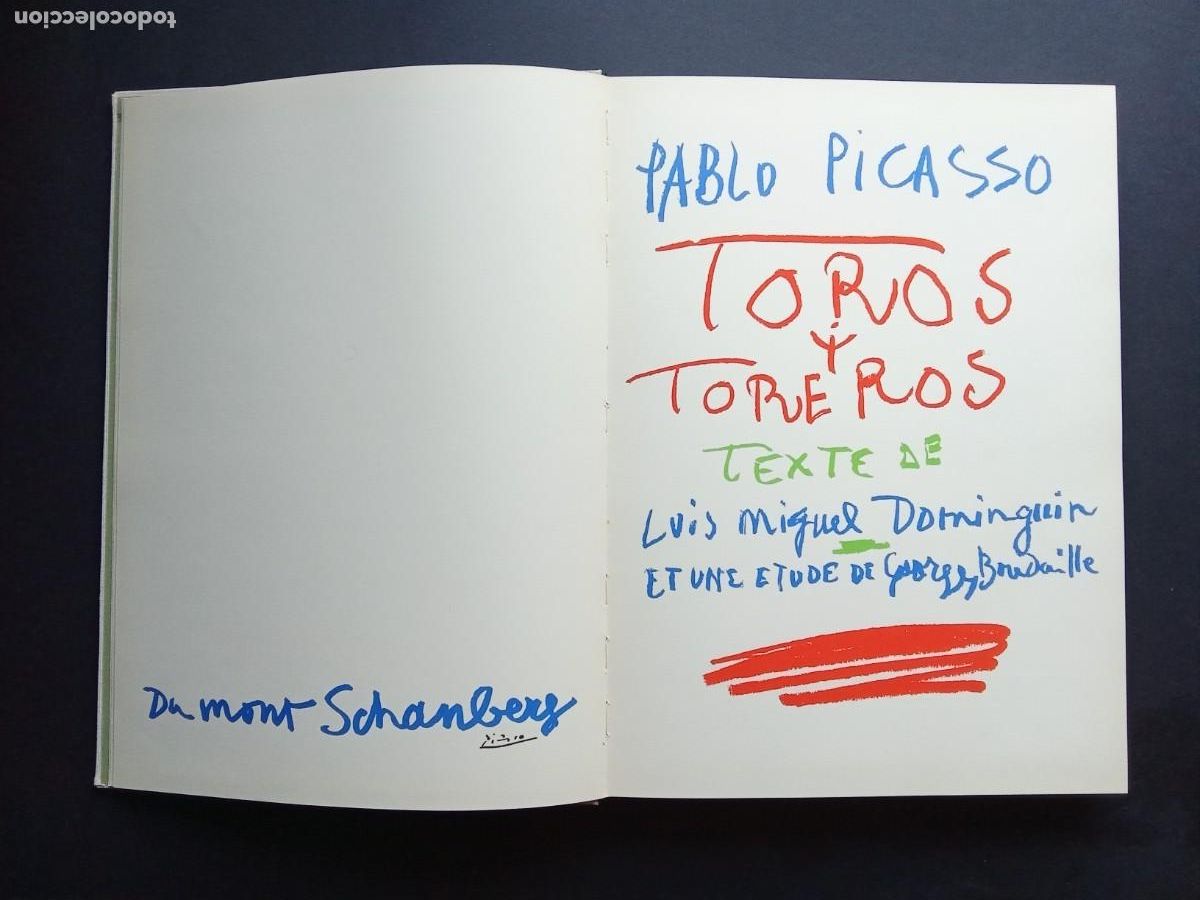 todocoleccion
Du mont Schanberg
Picasso
PABLO PiCASSO
TOROS
Y
TOREROS
TEXTE DE
Luis Miguel Dominguin
ET UNE ETUDE DE Georges Boudaille